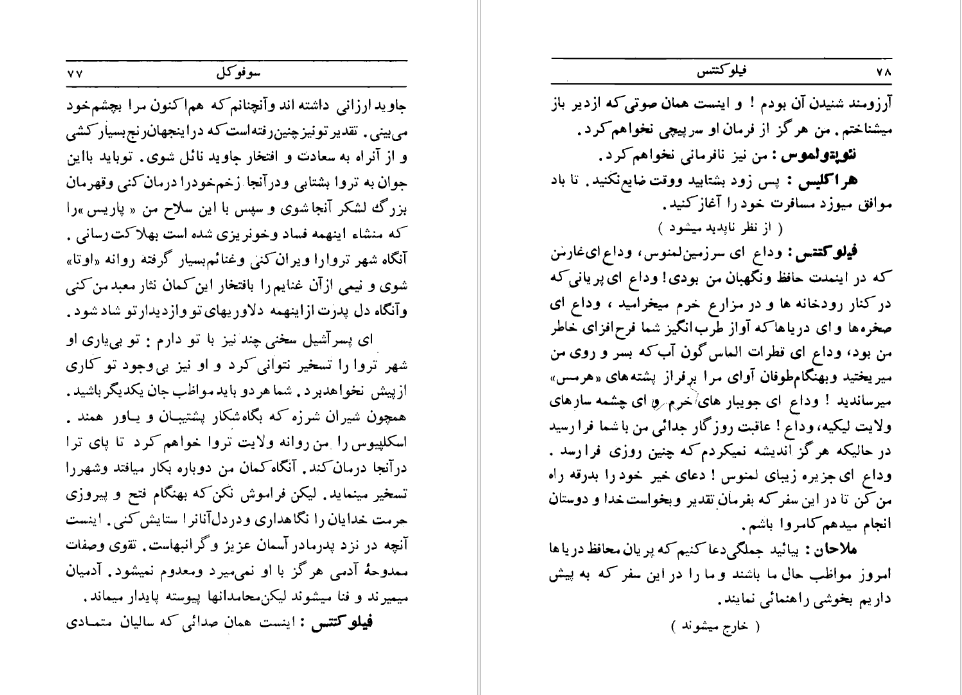 سوفوکل ۷۷
جاوید ارزانی داشته اند وآنچنانم که هم‌اکنون مرا بچشم‌خود
می‌بینی. تقدیر تونیز چنین‌رفته‌است که دراینجهان‌رنج‌بسیارکشی
و از آنراه به سعادت و افتخار جاوید نائل شوی. توباید بااین
جوان به تروا بشتابی ودرآنجا زخم‌خودرا درمان کنی وقهرمان
بزرگ لشکر آنجا شوی و سپس با این سلاح من « پاریس »را
که منشاء اینهمه فساد وخونریزی شده است بهلاکت رسانی .
آنگاه شهر تروارا ویران‌کنی وغنائم‌بسیار گرفته روانه «اوتا»
شوی و نیمی ازآن غنایم را بافتخار این‌کمان نثار معبد من کنی
وآنگاه دل پدرت ازاینهمه دلاوریهای تو وازدیدار تو شاد شود .
ای پسرآشیل سخنی چند نیز با تو دارم : تو بی‌یاری او
شهر تروا را تسخیر نتوانی کرد و او نیز بی‌وجود تو کاری
ازپیش نخواهدبرد. شما هر دو باید مواظب جان یکدیگر باشید.
همچون شیران شرزه که بگاه‌شکار پشتیبان و یاور همند .
اسکلپیوس را من روانه ولایت تروا خواهم کرد تا پای ترا
درآنجا درمان‌کند. آنگاه‌کمان من دوباره بکار میافتد وشهررا
تسخیر مینماید. لیکن فراموش نکن‌که بهنگام فتح و پیروزی
حرمت خدایان را نگاهداری ودردل‌آنانرا ستایش کنی. اینست
آنچه در نزد پدرمادر آسمان عزیز وگرانبهاست. تقوی وصفات
ممدوحهٔ آدمی هرگز با او نمی‌میرد ومعدوم نمیشود. آدمیان
میمیرند و فنا میشوند لیکن‌محامدانها پیوسته پایدار میماند.
فیلوکتتس : اینست همان صدائی که سالیان متمـادی
۷۸ فیلوکتتس
آرزومند شنیدن آن بودم ! و اینست همان صوتی‌که ازدیر باز
میشناختم. من هرگز از فرمان او سرپیچی نخواهم‌کرد.
نئوپتولموس : من نیز نافرمانی نخواهم‌کرد.
هراکلیس : پس زود بشتابید ووقت ضایع‌نکنید. تا باد
موافق میوزد مسافرت خود را آغازکنید.
( از نظر ناپدید میشود )
فیلوکتتس: وداع ای سرزمین‌لمنوس، وداع‌ای‌غارمن
که در اینمدت حافظ ونگهبان من بودی! وداع ای پریانی‌که
در کنار رودخانه ها و در مزارع خرم میخرامید ، وداع ای
صخره‌ها و ای دریاها که آواز طرب‌انگیز شما فرح‌افزای خاطر
من بود، وداع ای قطرات الماس‌گون آب‌که بسر و روی من
میریختید وبهنگام‌طوفان آوای مرا برفراز پشته‌های «هرمس»
میرساندید ! وداع ای جویبار های خرم و ای چشمه سارهای
ولایت لیکیه، وداع! عاقبت روزگار جدائی من با شما فرا رسید
در حالیکه هرگز اندیشه نمیکردم که چنین روزی فرا رسد .
وداع ای جزیره زیبای لمنوس ! دعای خیر خود را بدرقه راه
من کن تا در این سفر که بفرمان تقدیر وبخواست خدا و دوستان
انجام میدهم کامروا باشم.
ملاحان: بیائید جملگی‌دعا کنیم که پریان محافظ دریاها
امروز مواظب حال ما باشند و ما را در این سفر که به پیش
داریم بخوشی راهنمائی نمایند.
( خارج میشوند )